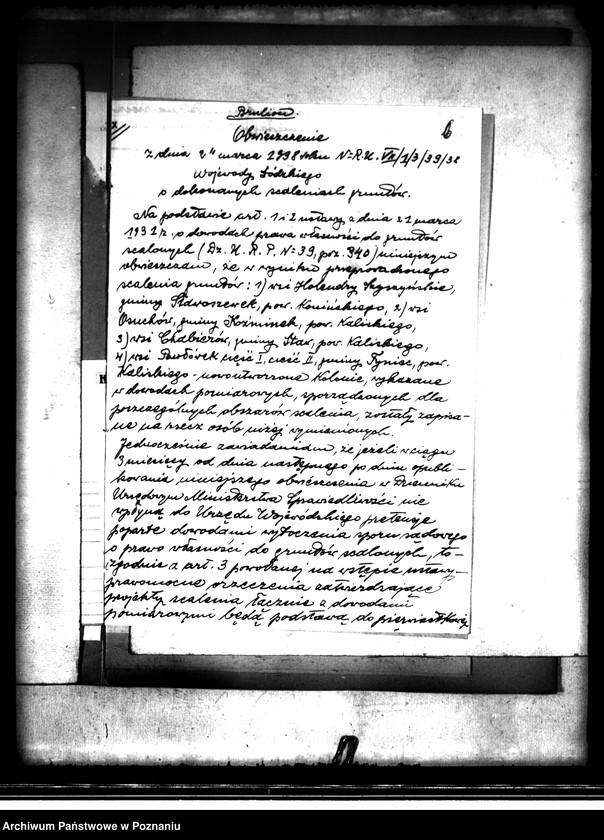 Brulion.
6
Obwieszczenie
z dnia 24 marca 1938 roku N=R.U. VII/1/3/39/38
Wojewody Łódzkiego
o dokonanych scaleniach gruntów.
Na podstawie art. 1 i 2 ustawy z dnia 21 marca
1931 r. o dowodach prawa własności do gruntów
scalonych (Dz. U. R. P. N=39, poz. 340) niniejszym
obwieszczam, że w wyniku przeprowadzonego
scalenia gruntów: 1) wsi Holendry
gminy Stawoszewek, pow. Konińskiego, 2) wsi
Osuchów, gminy Koźminek, pow. Kaliskiego,
3) wsi Chalbierów, gminy Staw, pow. Kaliskiego,
4) wsi Pawłówek część I, część II, gminy Tyniec, pow.
Kaliskiego - nowoutworzone kolonie, wykazane
w dowodach pomiarowych, sporządzonych dla
poszczególnych obszarów scalenia, zostały zapisa-
ne na rzecz osób niżej wymienionych.
Jednocześnie zawiadamiam, że jeżeli w ciągu
3 miesięcy od dnia następnego po dniu opubli-
kowania niniejszego obwieszczenia w Dzienniku
Urzędowym Ministerstwa Sprawiedliwości nie
wpłyną do Urzędu Wojewódzkiego pretensje
poparte dowodami wytoczenia sporu sądowego
o prawo własności do gruntów scalonych, to-
zgodnie z art. 3 powołanej na wstępie ustawy -
prawomocne orzeczenia zatwierdzające
projekty scalenia łącznie z dowodami
pomiarowymi będą podstawą do pierwiastkowej
Archiwum Państwowe w Poznaniu